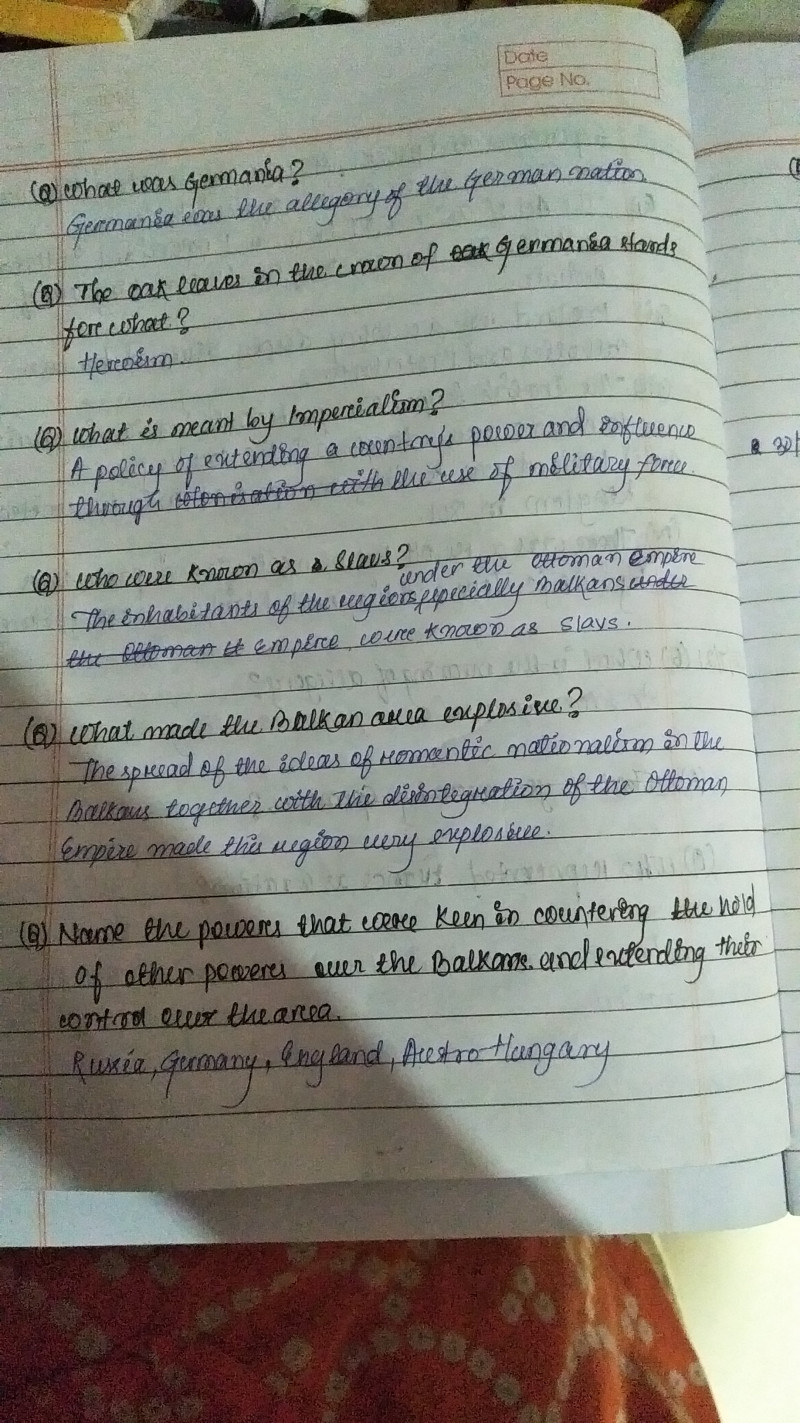 Date
Page No.
(Q) What was Germania?
Germania was the allegory of the German nation.
(Q) The oak leaves in the crown of oak Germania stands
for what?
Heroism.
(Q) What is meant by Imperialism?
A policy of extending a country's power and influence
through colonisation with the use of military force.
(Q) Who were known as a Slavs?
under the Ottoman Empire
The inhabitants of the regions especially Balkans under
the Ottoman Empire were known as Slavs.
(Q) What made the Balkan area explosive?
The spread of the ideas of romantic nationalism in the
Balkans together with the disintegration of the Ottoman
Empire made this region very explosive.
(Q) Name the powers that were keen in countering the hold
of other powers over the Balkans and extending their
control over the area.
Russia, Germany, England, Austro-Hungary